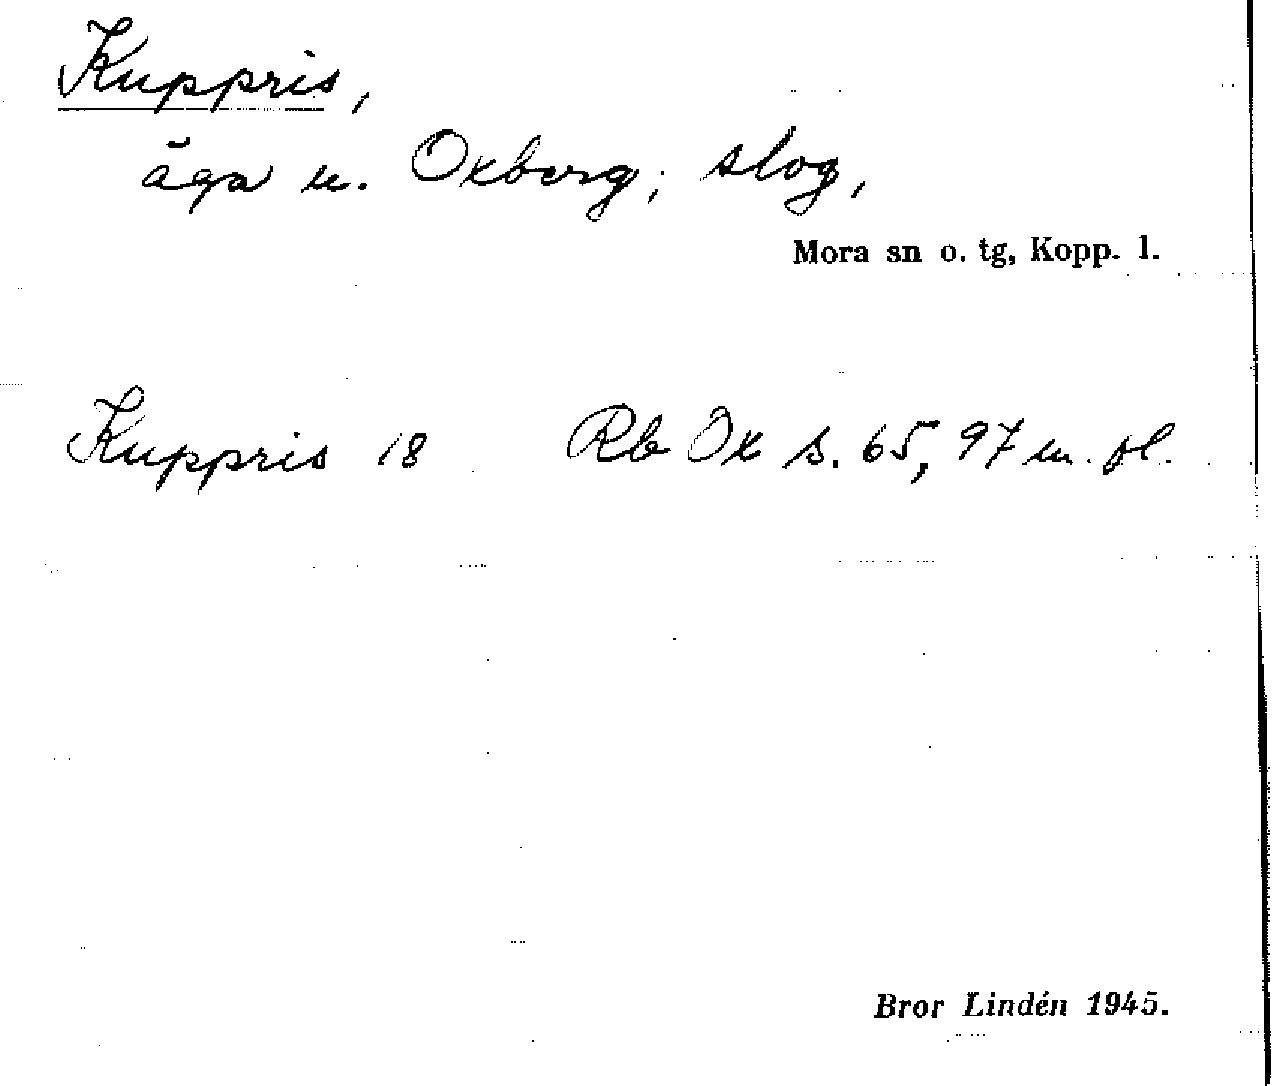 Kuppris,
äga u. Oxberg; slog,
Mora sn o. tg, Kopp. l.
Kuppris 18 Rb Ox s. 65, 97 m. fl.
Bror Lindén 1945.